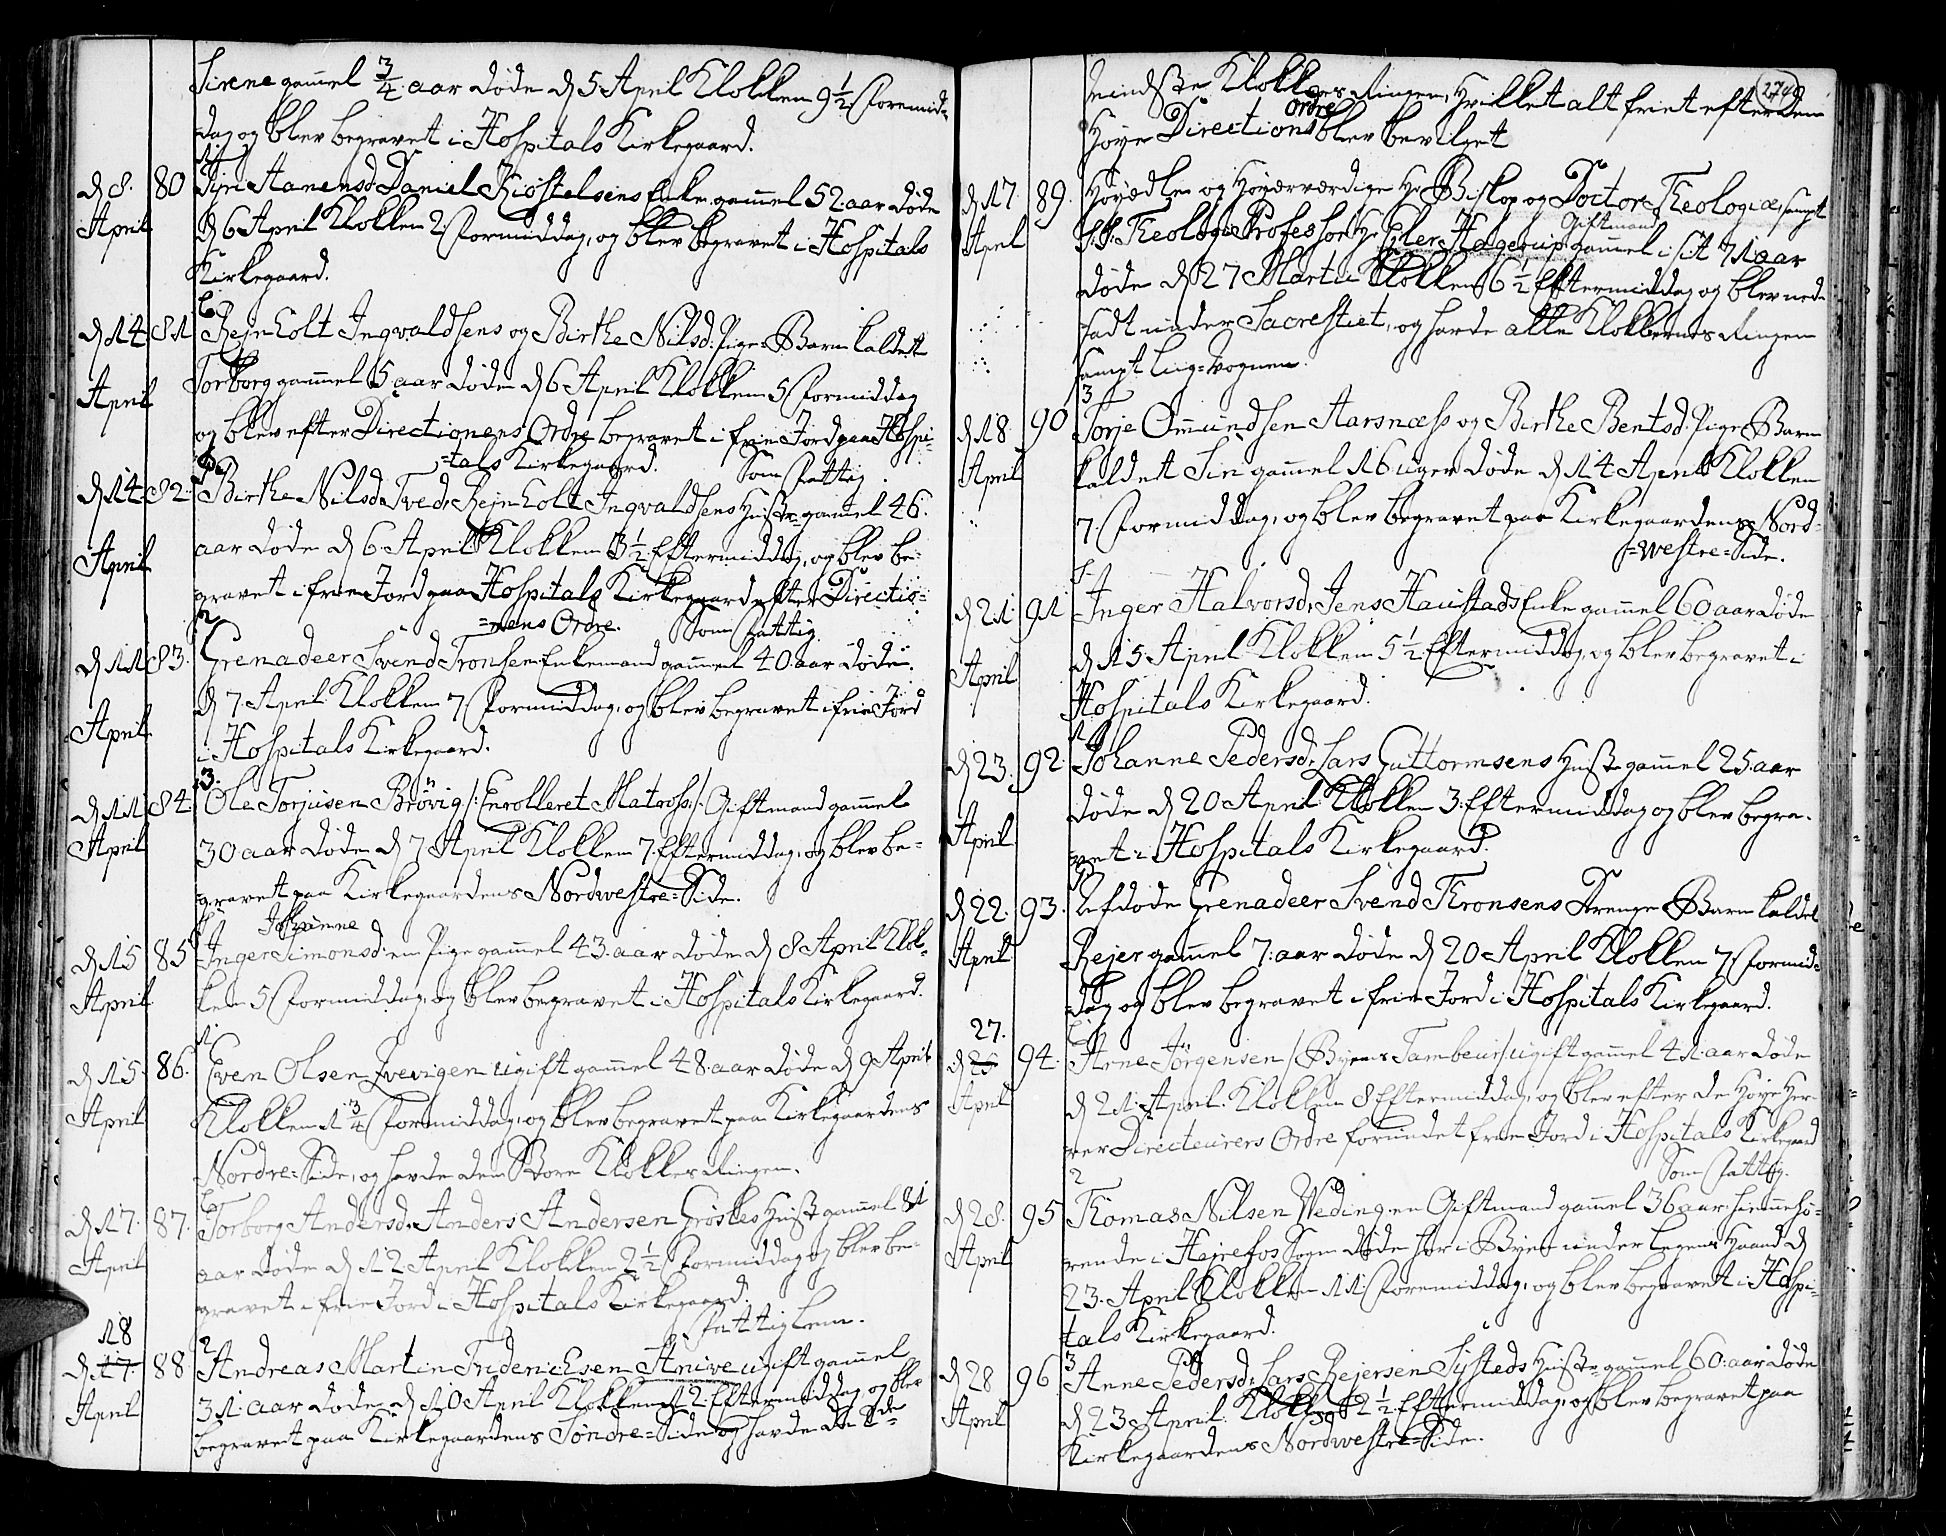 Sirene gamel 3/4 aar døde d 5 April Klokken 9 1/2 Formid-
dag og blev begravet i Hospitals Kirkegaard.
d 8. April 80 Siri Aanensd Daniel Kiøstelsens Enke gamel 52 aar døde
d 6 April Klokken 2 Formiddag, og blev begravet i Hospitals
Kirkegaard.
d 14 April 81 Rejnholt Ingvaldsens og Birthe Nilsd: Pige-Barn kaldet
Torborg gamel 5 aar døde d 6 April Klokken 5 Formiddag
og blev efter Directionens Ordre begravet i frie Jord paa Hospi-
=tals Kirkegaard. Som Fattig.
d 14 April 82. Birthe Nilsd: Tved, Rejnholt Ingvaldsens Hustr gamel 46.
aar døde d 6 April Klokken 3 1/2 Eftermiddag, og blev be-
gravet i frie Jord paa Hospitals Kirkegaard efter Directio-
=nens Ordre. Som Fattig.
d 11 April 83. Grenadeer Svend Tronsen Enkemand gamel 40 aar døde
d 7. April Klokken 7 Formiddag, og blev begravet i frie Jord
i Hospitals Kirkegaard.
3.
d 11 April 84. Ole Torjusen Brøvig /: Enrolleret Matross :/ Giftmand gamel
30 aar døde d 7 April Klokken 7 Eftermiddag, og blev be-
gravet paa Kirkegaardens Nordwestre-Side.
Johanne
d 15 April 85 Inger Simonsd: en Pige gamel 43. aar døde d 8 April Klok-
ken 5 Formiddag, og blev begravet i Hospitals Kirkegaard.
d 15. April 86. Even Olsen Evevigen ugift gamel 48. aar døde d 9 April
Klokken 1 3/4 Formiddag, og blev begravet paa Kirkegaardens
Nordre-Side, og havde den Store Klokkes Ringen.
d 17. April 87. Torborg Andersd: Anders Andersen Grøskes Hustr gamel 81
aar døde d 12 April Klokken 2 1/2 Formiddag og blev be-
gravet i frie Jord i Hospitals Kirkegaard.
Fattiglem.
18 2
d 17. April 88 Andreas Martin Fridericksen Anive ugift gamel
31. aar døde d 10 April Klokken 12 Eftermiddag, og blev
begravet paa Kirkegaardens Søndre-Side og havde de 2de
274
mindste Klokkers Ringen, hvilket alt friet efter den
Ordre
Høye Directions blev bevilget
d 17 April 89. Høyædle og Høyærværdige Hr Biskop og Doctor Theologiæ, sampt
Giftmand
S.S. Theologiæ Professor Hr Eiler Hagerup gamel i sit 71 aar
døde d 27 Martii Klokken 6 1/2 Eftermiddag og blev ned-
sadt under Sacrestiet, og havde alle Klokkernes Ringen
sampt Liig-Vognen.
3
d 18 April 90 Torje Omundsen Aarsnæss og Birthe Bentsd: Pige-Barn
kaldet Siri gamel 16 uger døde d 14 April Klokken
7. Formiddag, og blev begravet paa Kirkegaardens Nord-
=westre-Side.
d 21. April 91 Inger Halvorsd: Jens Haustads Enke gamel 60 aar døde
d 15 April Klokken 5 1/2 Eftermiddag, og blev begravet i
Hospitals Kirkegaard.
d 23. April 92. Johanne Pedersd: Lars Guttormsens Hustr gamel 25 aar
døde d 20 April Klokken 3. Eftermiddag og blev begra-
vet i Hospitals Kirkegaard.
d 22. April 93. Afdøde Grenadeer Svend Thronsens Drenge-Barn kaldet
Rejer gamel 7. aar døde d 20 April Klokken 7 Formid-
dag og blev begravet i frie Jord i Hospitals Kirkegaard.
27.
d 25 April 94. Arne Jørgensen /: Byens Tambour :/ ugift gamel 41. aar døde
d 21. April. Klokken 8 Eftermiddag, og blev efter de Høye Her-
rer Directeurers Ordre forundet frie Jord i Hospitals Kirkegaard
Som Fattig.
2
d 28. April 95 Thomas Nilsen Weding en Giftmand gamel 36 aar: hiemmehø-
rende i Hejrefos Sogn døde her i Byen under Legens Haand d
23. April Klokken 11 Formiddag, og blev begravet i Hospi-
tals Kirkegaard.
3
d 28 April 96 Anne Pedersd: Lars Rejersen Systads Hustr gamel 60. aar døde
d 23 April Klokken 2 1/2 Eftermiddag, og blev begravet paa
Kirkegaardens Nordwestre-Side.